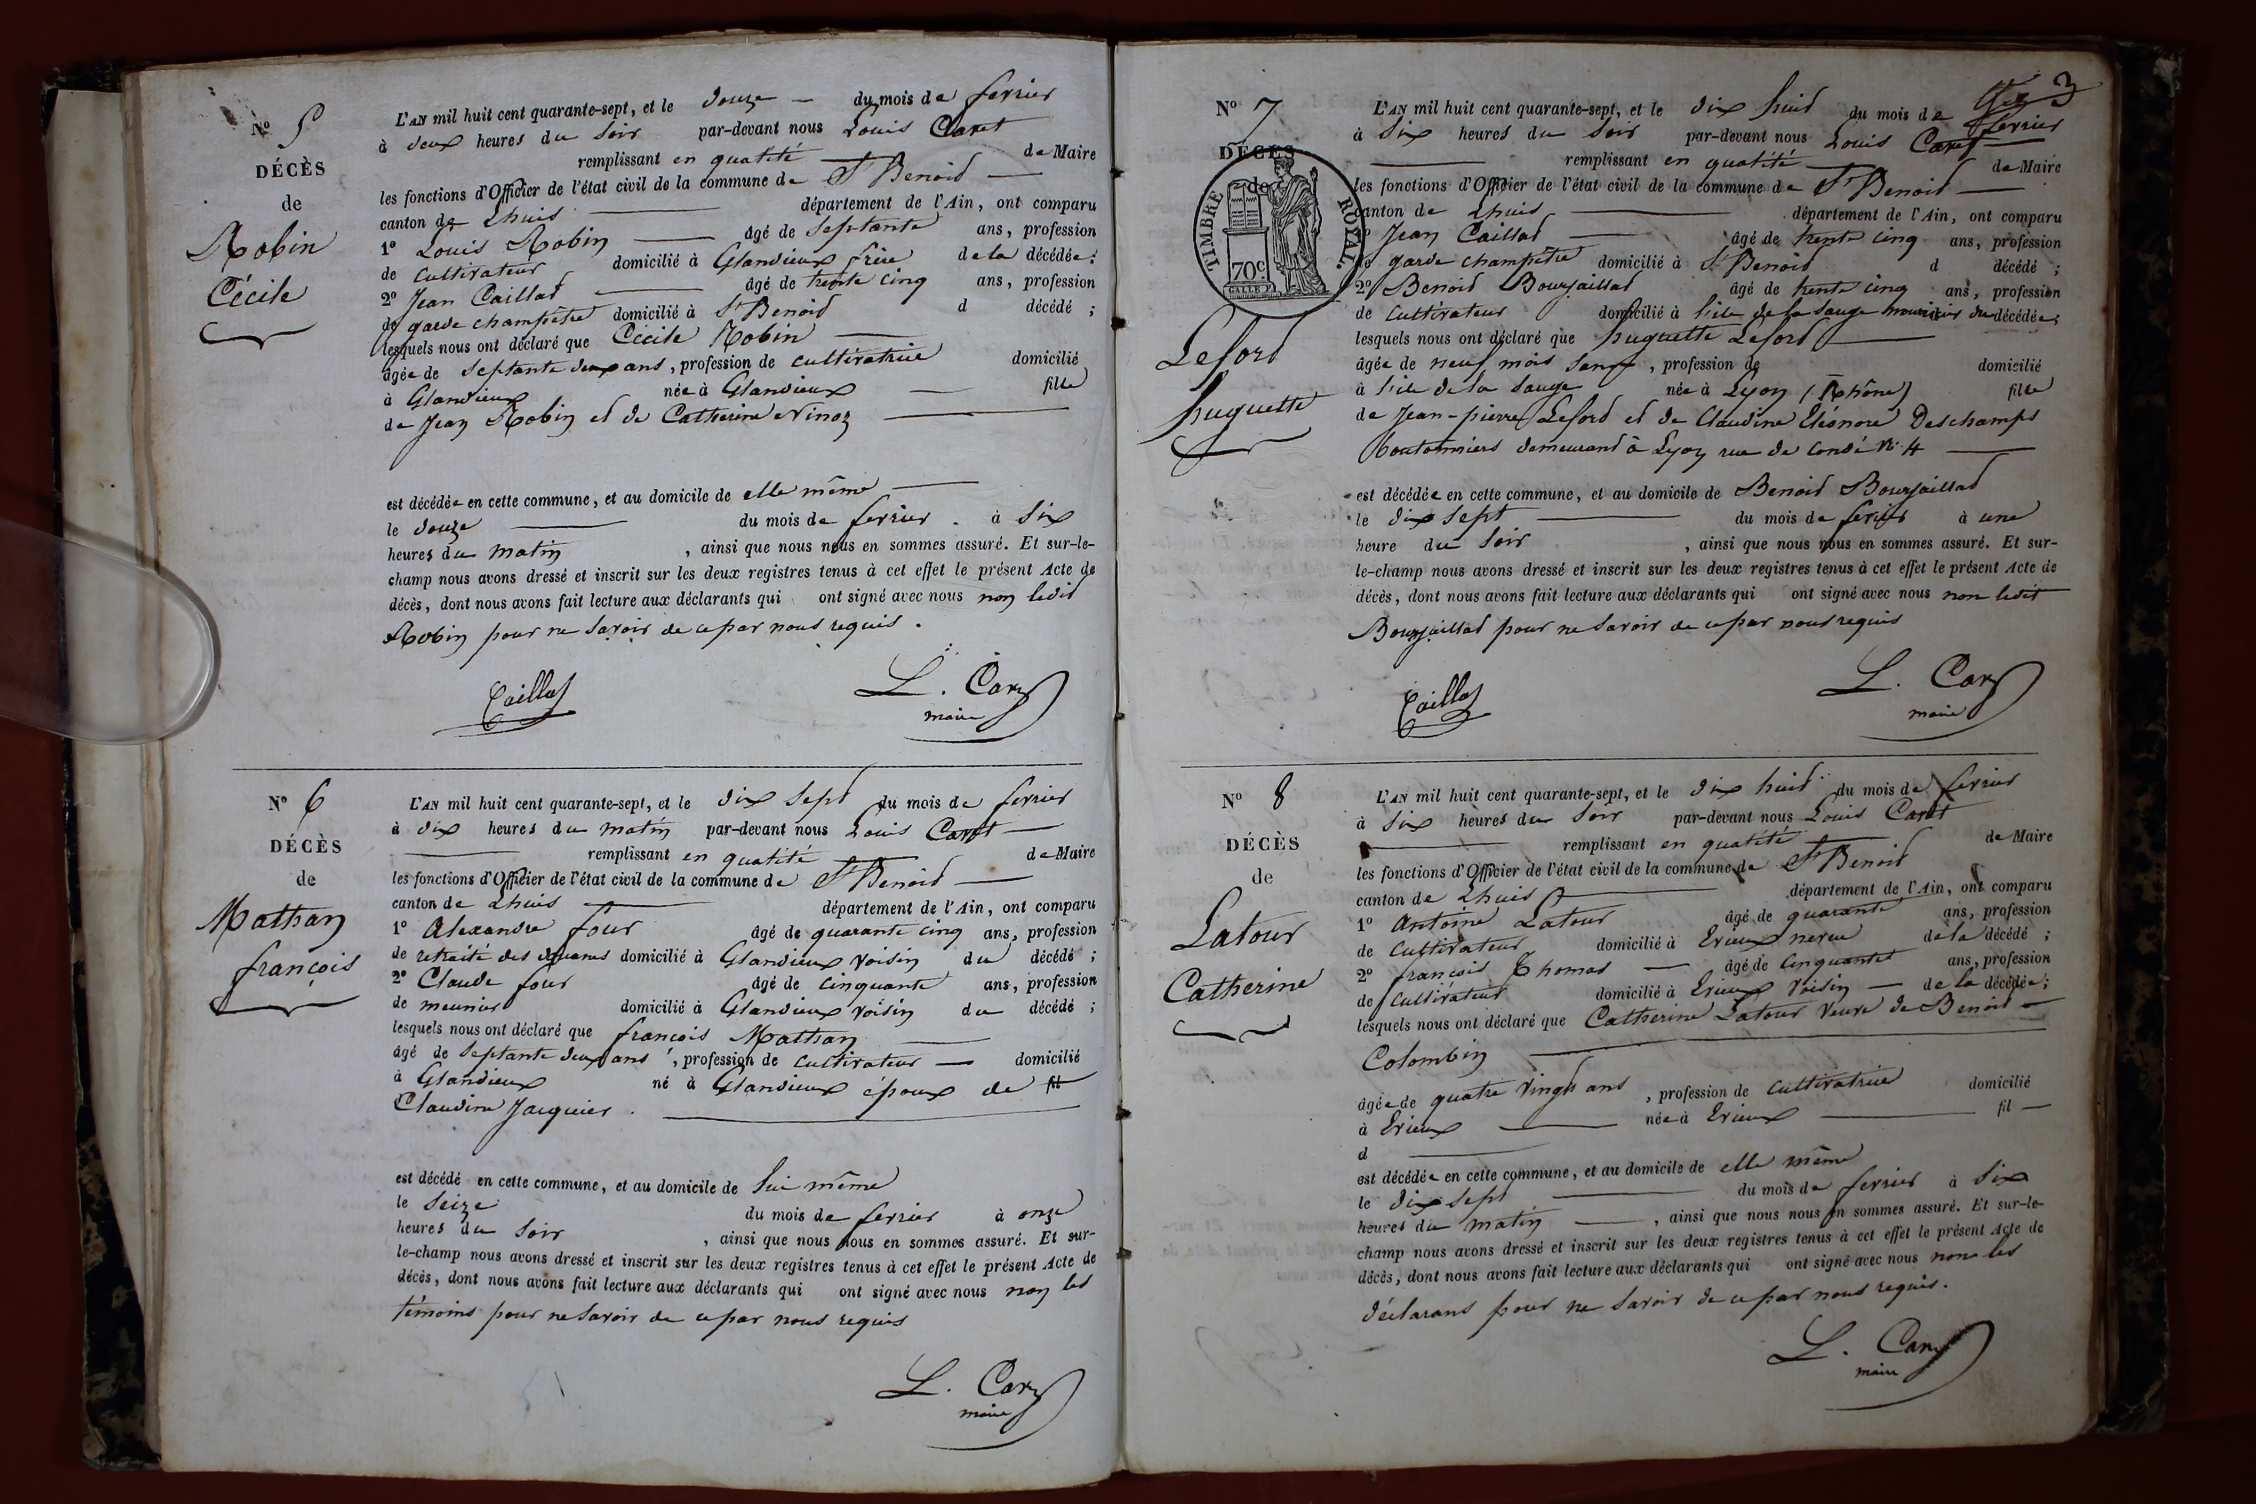 N° 5
DÉCÈS
de
Robin
Cécile
L'AN mil huit cent quarante-sept, et le douze — du mois de fevrier
à deux heures du soir par-devant nous Louis Caret
remplissant en qualité de Maire
les fonctions d'Officier de l'état civil de la commune de St Benoid —
canton de Lhuis — département de l'Ain, ont comparu
1° Louis Robin — âgé de septante ans, profession
de cultivateur domicilié à Glandieux frère de la décédée ;
2° Jean Caillat — âgé de trente cinq ans, profession
de garde champêtre domicilié à St Benoid d décédé ;
lesquels nous ont déclaré que Cécile Robin —
âgée de septante deux ans, profession de cultivatrice domicilié
à Glandieux née à Glandieux — fille
de Jean Robin et de Catherine Ninoz —
est décédée en cette commune, et au domicile de elle même —
le douze — du mois de fevrier . à six
heures du matin , ainsi que nous nous en sommes assuré. Et sur-le-
champ nous avons dressé et inscrit sur les deux registres tenus à cet effet le présent Acte de
décès, dont nous avons fait lecture aux déclarants qui ont signé avec nous non ledit
Robin pour ne savoir de ce par nous requis .
Caillat L. Caret
maire
N° 6
DÉCÈS
de
Mathan
françois
L'AN mil huit cent quarante-sept, et le dix sept du mois de fevrier
à dix heures du matin par-devant nous Louis Caret —
— remplissant en qualité de Maire
les fonctions d'Officier de l'état civil de la commune de St Benoid —
canton de Lhuis — département de l'Ain, ont comparu
1° Alexandre four âgé de quarante cinq ans, profession
de retraité des douanes domicilié à Glandieux voisin du décédé ;
2° Claude four âgé de cinquante ans, profession
de meunier domicilié à Glandieux voisin du décédé ;
lesquels nous ont déclaré que françois Mathan —
âgé de septante deux ans , profession de cultivateur — domicilié
à Glandieux né à Glandieux époux de fil
Claudine Jacquier . —
est décédé en cette commune, et au domicile de lui même
le seize du mois de fevrier à onze
heures du soir , ainsi que nous nous en sommes assuré. Et sur-
le-champ nous avons dressé et inscrit sur les deux registres tenus à cet effet le présent Acte de
décès, dont nous avons fait lecture aux déclarants qui ont signé avec nous non les
témoins pour ne savoir de ce par nous requis
L. Caret
maire
3
N° 7
DÉCÈS
de
TIMBRE ROYAL.
70c.
Lefort
huguette
L'AN mil huit cent quarante-sept, et le dix huit du mois de fevrier
à six heures du soir par-devant nous Louis Caret
— remplissant en qualité — de Maire
les fonctions d'Officier de l'état civil de la commune de St Benoid —
canton de Lhuis — département de l'Ain, ont comparu
1° Jean Caillat — âgé de trente cinq ans, profession
de garde champêtre domicilié à St Benoid d décédé ;
2° Benoid Bourjaillat âgé de trente cinq ans, profession
de cultivateur domicilié à l'ile de la Sauge nourricier du décédée ;
lesquels nous ont déclaré que huguette Lefort —
âgée de neuf mois sans , profession de domicilié
à l'ile de la Sauge née à Lyon (Rhône) fille
de Jean-pierre Lefort et de Claudine Eléonore Deschamps
boutonniers demeurant à Lyon rue de Condé N° 4 —
est décédée en cette commune, et au domicile de Benoid Bourjaillat
le dix sept — du mois de fevrier à une
heure du soir , ainsi que nous nous en sommes assuré. Et sur-
le-champ nous avons dressé et inscrit sur les deux registres tenus à cet effet le présent Acte de
décès, dont nous avons fait lecture aux déclarants qui ont signé avec nous non ledit
Bourjaillat pour ne savoir de ce par nous requis
Caillat L. Caret
maire
N° 8
DÉCÈS
de
Latour
Catherine
L'AN mil huit cent quarante-sept, et le dix huit du mois de fevrier
à six heures du soir par-devant nous Louis Caret
— remplissant en qualité — de Maire
les fonctions d'Officier de l'état civil de la commune de St Benoid
canton de Lhuis — département de l'Ain, ont comparu
1° Antoine Latour âgé de quarante ans, profession
de cultivateur domicilié à Erieux neveu de la décédé ;
2° françois Thomas — âgé de cinquante ans, profession
de cultivateur domicilié à Erieux voisin — de la décédée ;
lesquels nous ont déclaré que Catherine Latour veuve de Benoit —
Colombin —
âgée de quatre vingts ans , profession de cultivatrice domicilié
à Erieux — née à Erieux — fil —
d —
est décédée en cette commune, et au domicile de elle même
le dix sept — du mois de fevrier à six
heures du matin — , ainsi que nous nous en sommes assuré. Et sur-le-
champ nous avons dressé et inscrit sur les deux registres tenus à cet effet le présent Acte de
décès, dont nous avons fait lecture aux déclarants qui ont signé avec nous non les
déclarans pour ne savoir de ce par nous requis.
L. Caret
maire